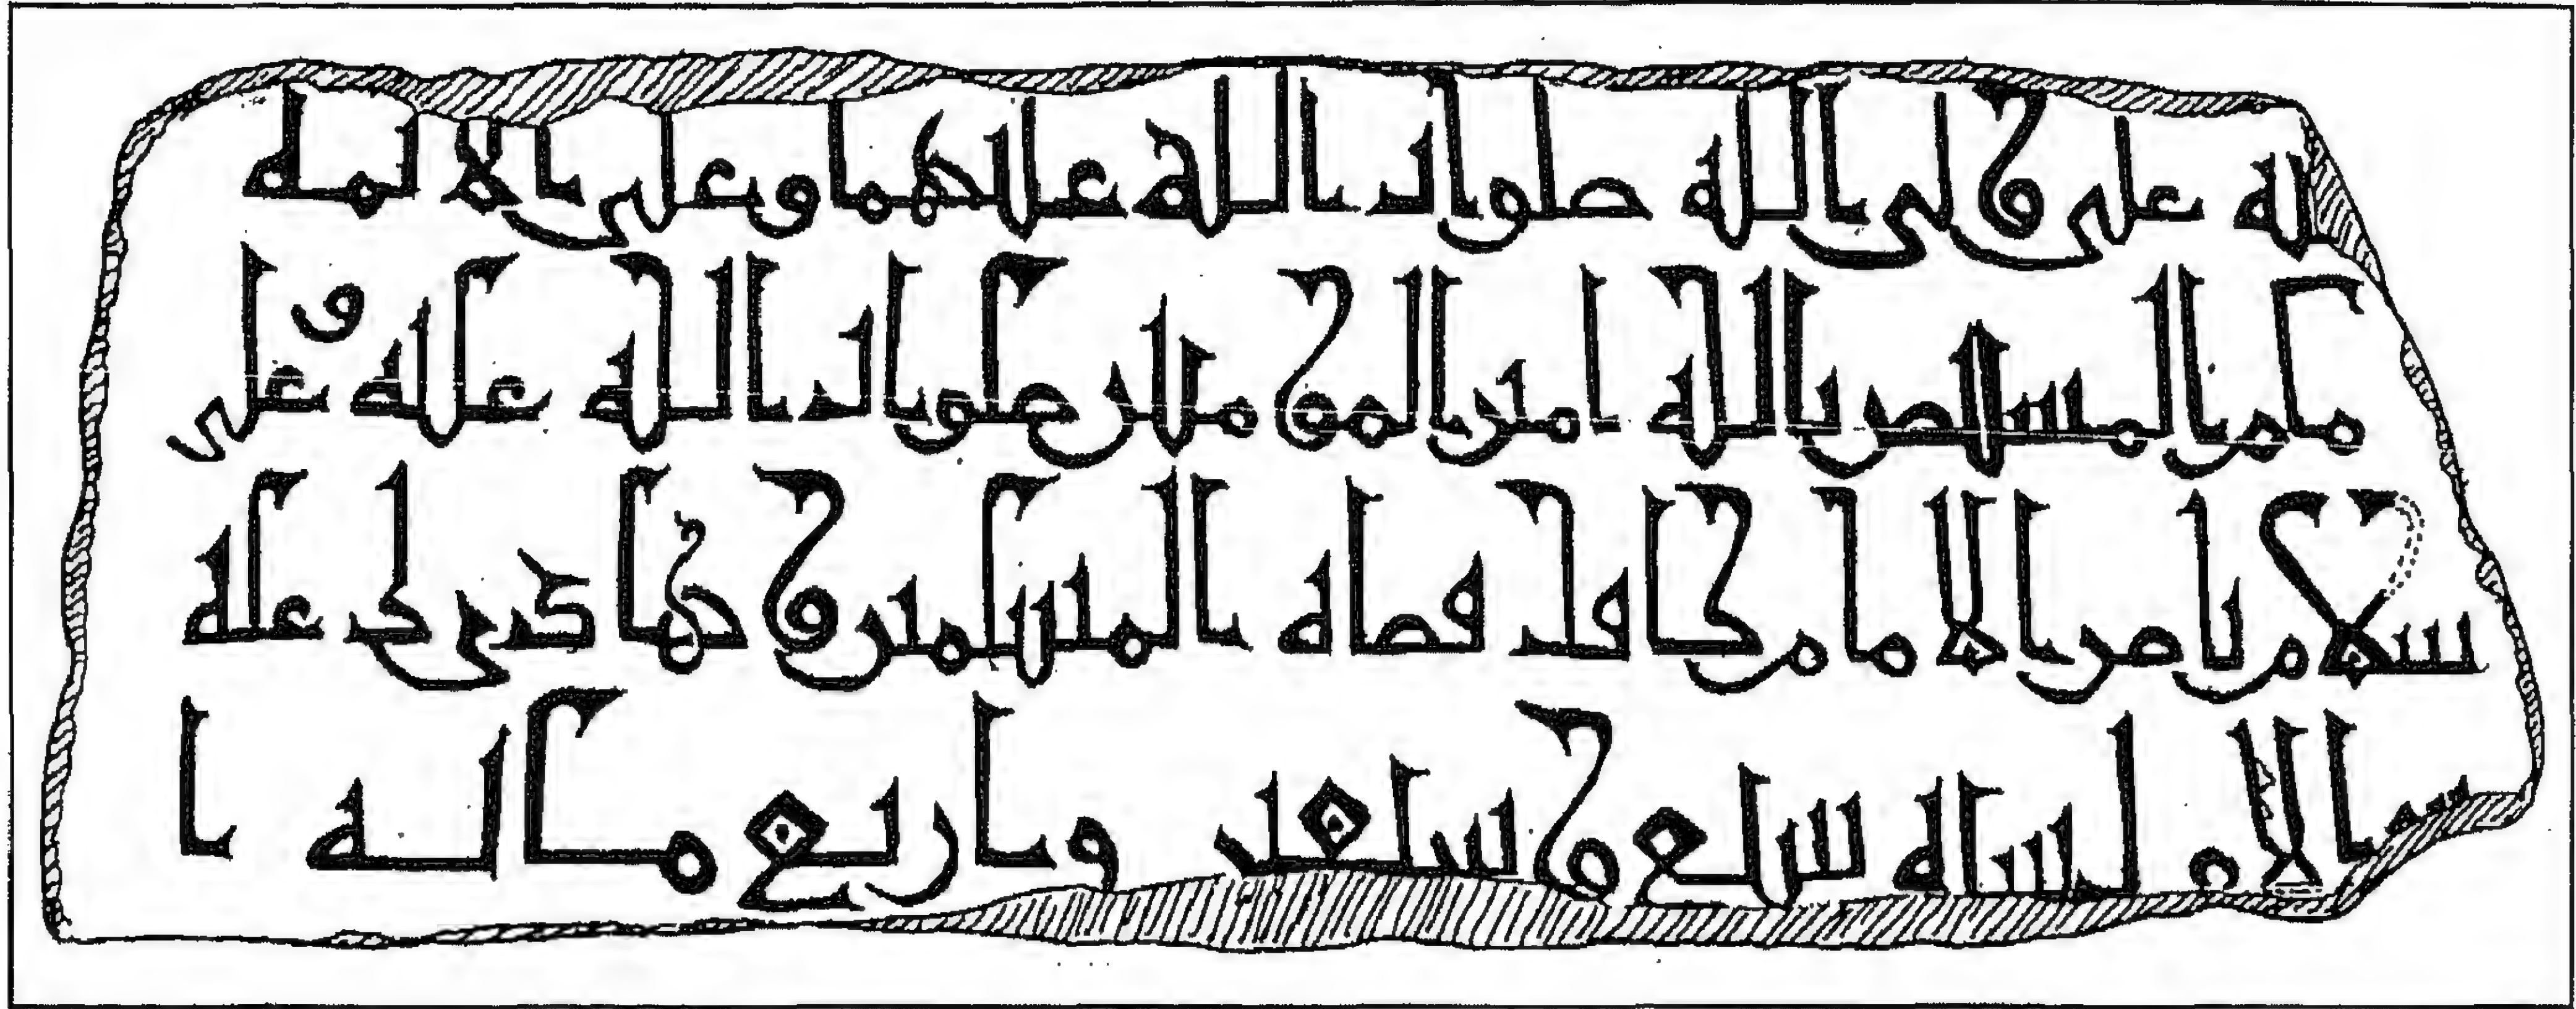 الله على ولى الله صلوات الله عليهما وعلى الائمة
مام المستنصر بالله امير المؤمنين صلوات الله عليه وعلى
سلام ناصر الامام كافل قضاة المسلمين و
الاول سنة سبع وسبعين واربع مائة